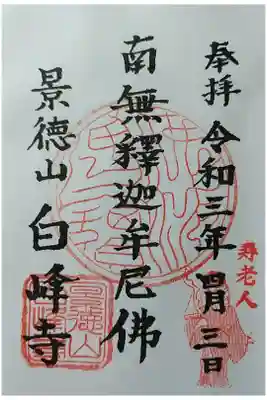 奉拝 令和三年四月三日
壽老人
南無釋迦牟尼佛
景德山 白峰寺